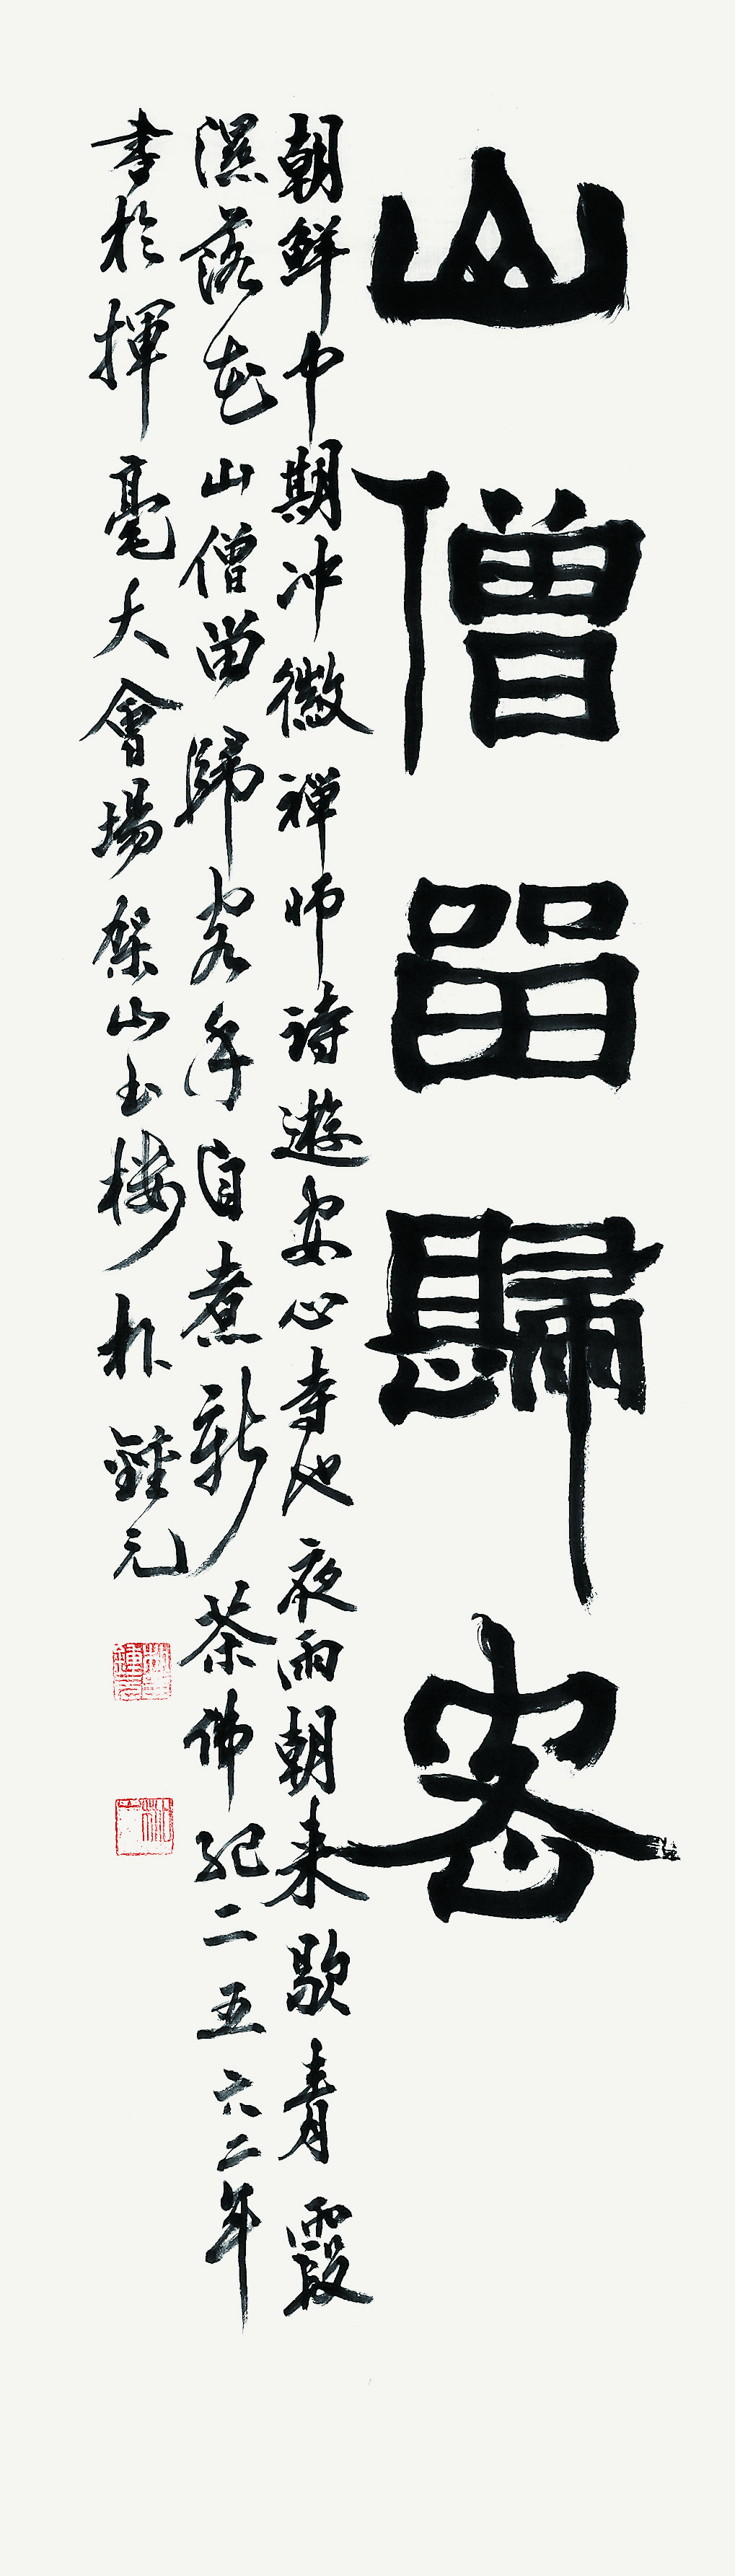 山僧留歸客
朝鮮中期冲徽禪師詩遊安心寺也夜雨朝来歇青霞
濕落花山僧留歸客手自煮新茶佛紀二五六二年
書於揮毫大會場架山玉樓朴鍾元